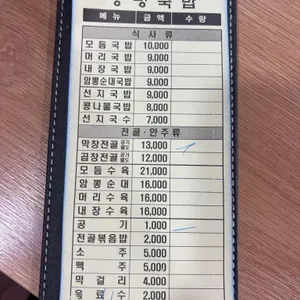 메뉴 금액 수량
식사류
모듬국밥 10,000
머리국밥 9,000
내장국밥 9,000
암뽕순대국밥 9,000
선지국밥 9,000
콩나물국밥 8,000
선지국수 7,000
전골·안주류
막창전골 13,000
곱창전골 12,000
모듬수육 21,000
암뽕순대 16,000
머리수육 16,000
내장수육 16,000
공기 1,000
전골볶음밥 2,000
소주 5,000
맥주 5,000
막걸리 4,000
음료수 2,000